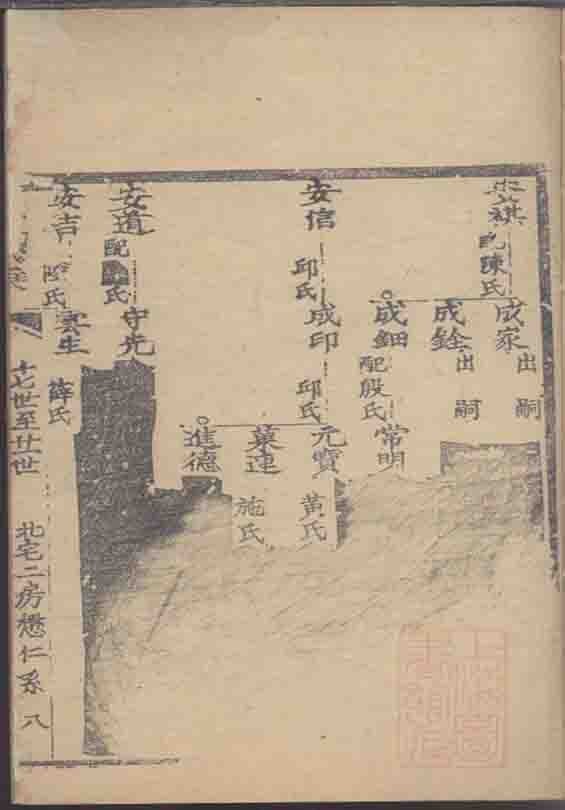 祺
配陳氏
成家
出嗣
成銓
出嗣
成鈿
配殷氏
常明
安信
邱氏
成印
邱氏
元寶
黃氏
葉連
施氏
進德
安道
配
氏
守光
安吉
陳氏
雲生
薛氏
十七世至廿世
北宅二房懋仁系
八